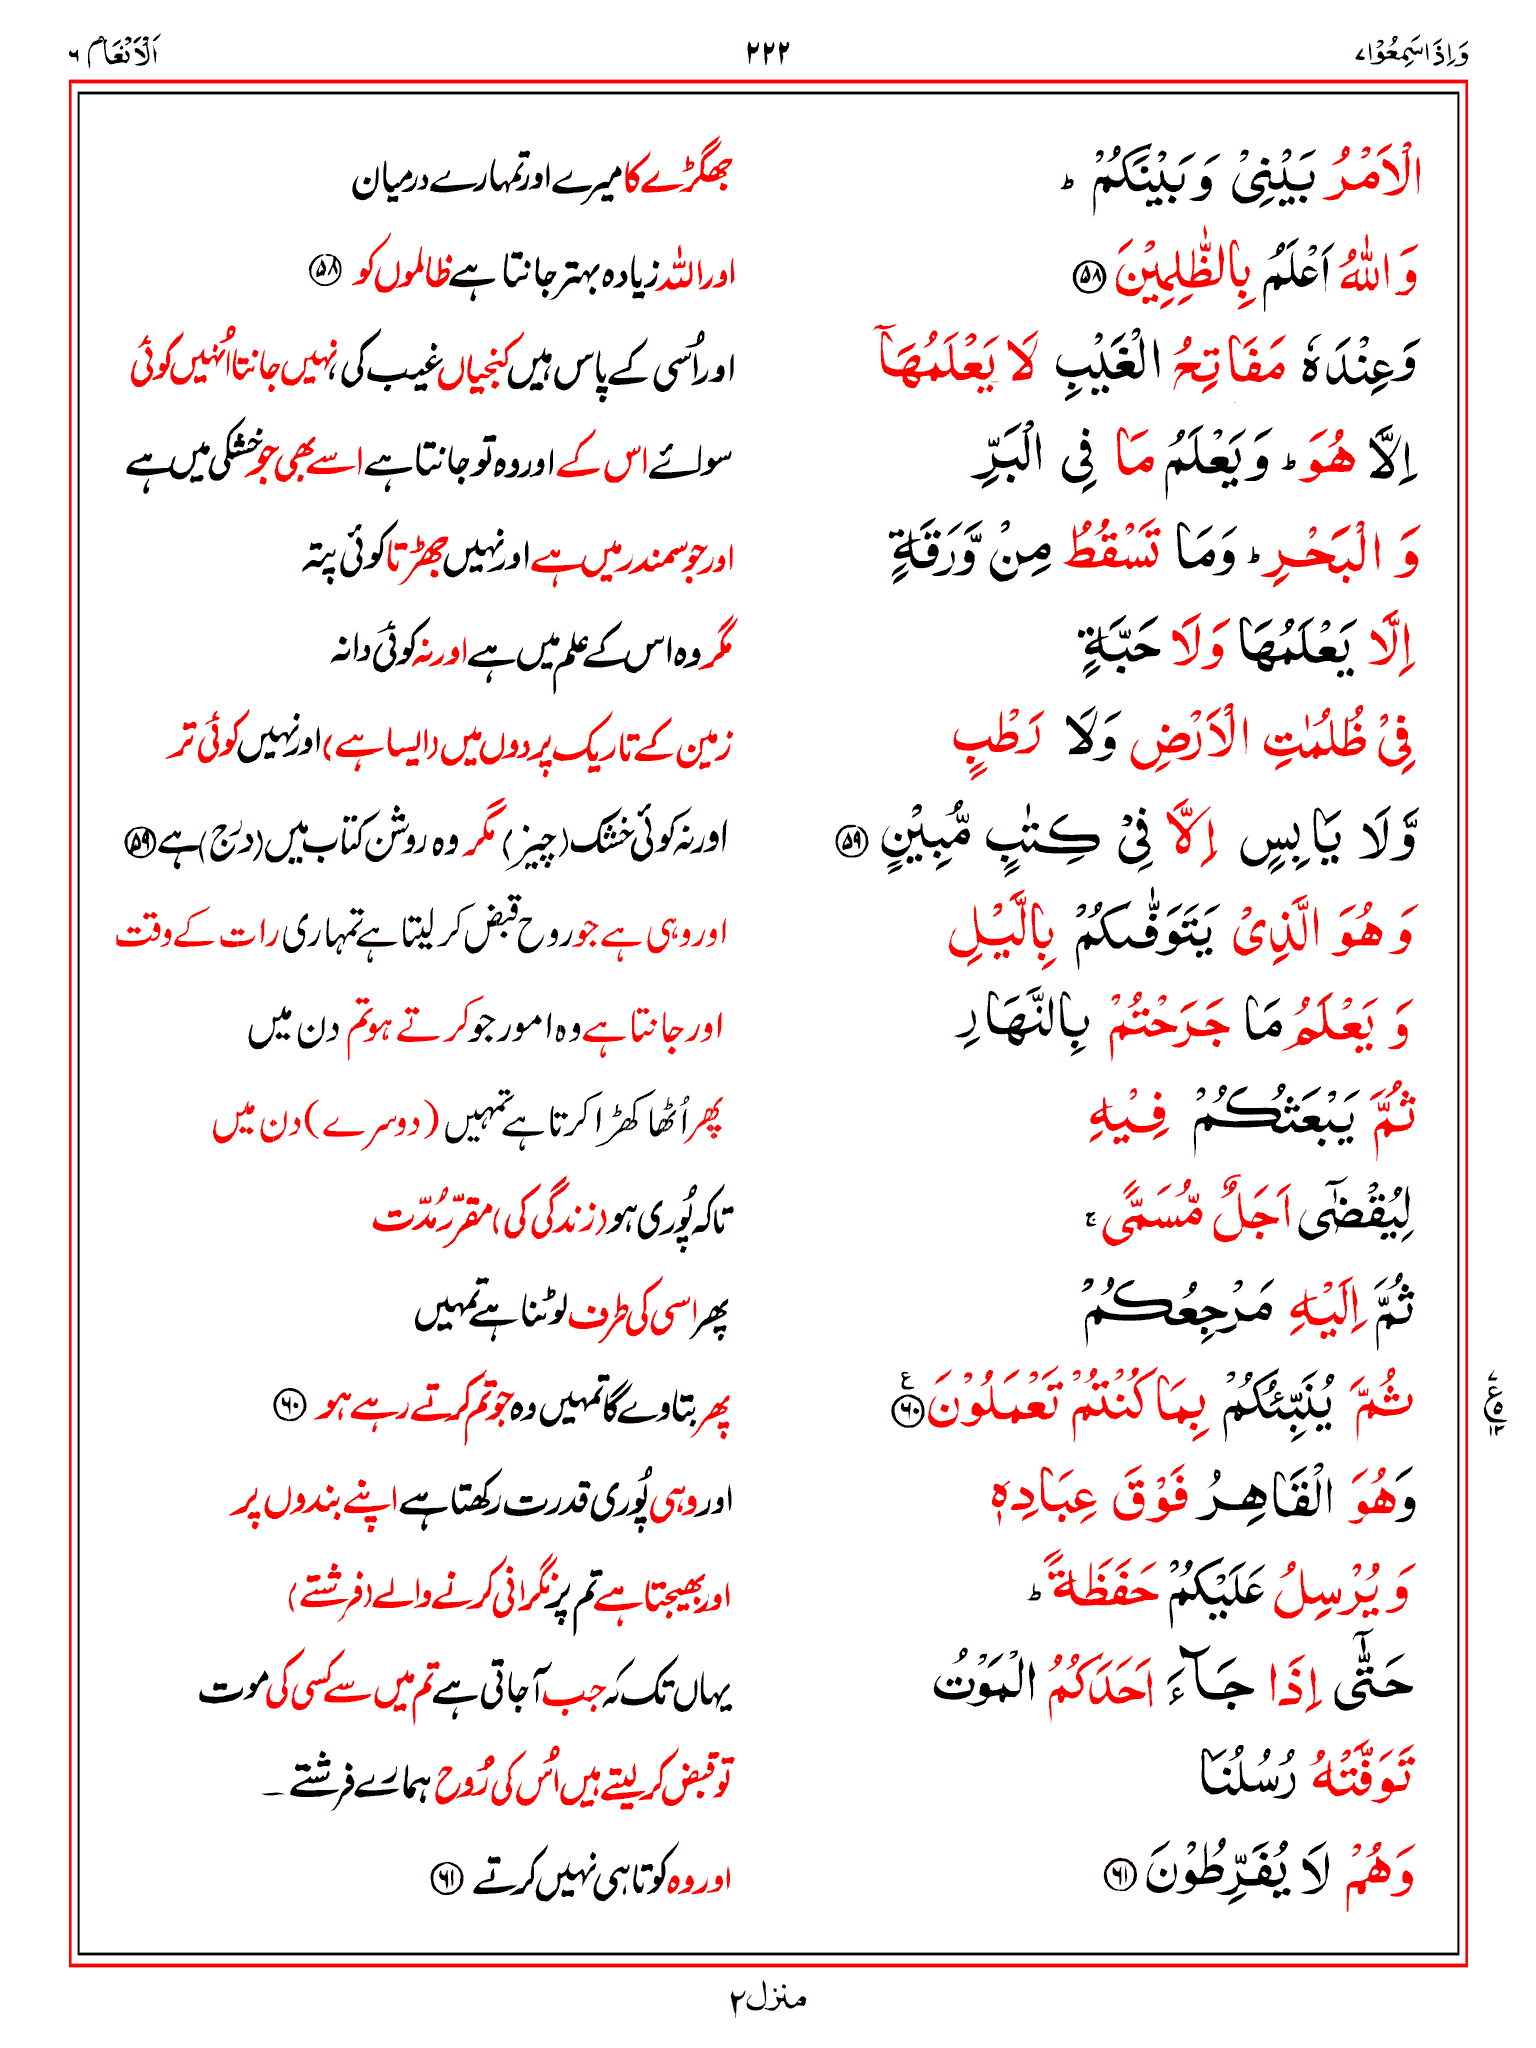 وَاِذَاسَمِعُوْا۷ ۲۲۲ اَلْاَنْعَام ۶
الْاَمْرُ بَيْنِىْ وَ بَيْنَكُمْ ؕ جھگڑے کا میرے اور تمہارے درمیان
وَ اللّٰهُ اَعْلَمُ بِالظّٰلِمِيْنَ ۵۸ اور اللہ زیادہ بہتر جانتا ہے ظالموں کو ۵۸
وَعِنْدَهٗ مَفَاتِحُ الْغَيْبِ لَا يَعْلَمُهَاۤ اور اُسی کے پاس ہیں کنجیاں غیب کی نہیں جانتا اُنہیں کوئی
اِلَّا هُوَ ؕ وَ يَعْلَمُ مَا فِى الْبَرِّ سوائے اس کے اور وہ تو جانتا ہے اسے بھی جو خشکی میں ہے
وَ الْبَحْرِ ؕ وَمَا تَسْقُطُ مِنْ وَّرَقَةٍ اور جو سمندر میں ہے اور نہیں جھڑتا کوئی پتہ
اِلَّا يَعْلَمُهَا وَلَا حَبَّةٍ مگر وہ اس کے علم میں ہے اور نہ کوئی دانہ
فِىْ ظُلُمٰتِ الْاَرْضِ وَلَا رَطْبٍ زمین کے تاریک پردوں میں (ایسا ہے) اور نہیں کوئی تر
وَّلَا يَابِسٍ اِلَّا فِىْ كِتٰبٍ مُّبِيْنٍ ۵۹ اور نہ کوئی خشک (چیز) مگر وہ روشن کتاب میں (درج) ہے ۵۹
وَ هُوَ الَّذِىْ يَتَوَفّٰٮكُمْ بِالَّيْلِ اور وہی ہے جو روح قبض کر لیتا ہے تمہاری رات کے وقت
وَ يَعْلَمُ مَا جَرَحْتُمْ بِالنَّهَارِ اور جانتا ہے وہ امور جو کرتے ہو تم دن میں
ثُمَّ يَبْعَثُكُمْ فِيْهِ پھر اُٹھا کھڑا کرتا ہے تمہیں (دوسرے) دن میں
لِيُقْضٰٓى اَجَلٌ مُّسَمًّى ۚ تاکہ پُوری ہو (زندگی کی) مقرّر مُدّت
ثُمَّ اِلَيْهِ مَرْجِعُكُمْ پھر اسی کی طرف لوٹنا ہے تمہیں
ثُمَّ يُنَبِّئُكُمْ بِمَا كُنْتُمْ تَعْمَلُوْنَ ۶۰ پھر بتاوے گا تمہیں وہ جو تم کرتے رہے ہو ۶۰
وَهُوَ الْقَاهِرُ فَوْقَ عِبَادِهٖ اور وہی پُوری قدرت رکھتا ہے اپنے بندوں پر
وَ يُرْسِلُ عَلَيْكُمْ حَفَظَةً ؕ اور بھیجتا ہے تم پر نگرانی کرنے والے (فرشتے)
حَتّٰٓى اِذَا جَآءَ اَحَدَكُمُ الْمَوْتُ یہاں تک کہ جب آجاتی ہے تم میں سے کسی کی موت
تَوَفَّتْهُ رُسُلُنَا تو قبض کر لیتے ہیں اُس کی رُوح ہمارے فرشتے ۔
وَهُمْ لَا يُفَرِّطُوْنَ ۶۱ اور وہ کوتاہی نہیں کرتے ۶۱
منزل۲